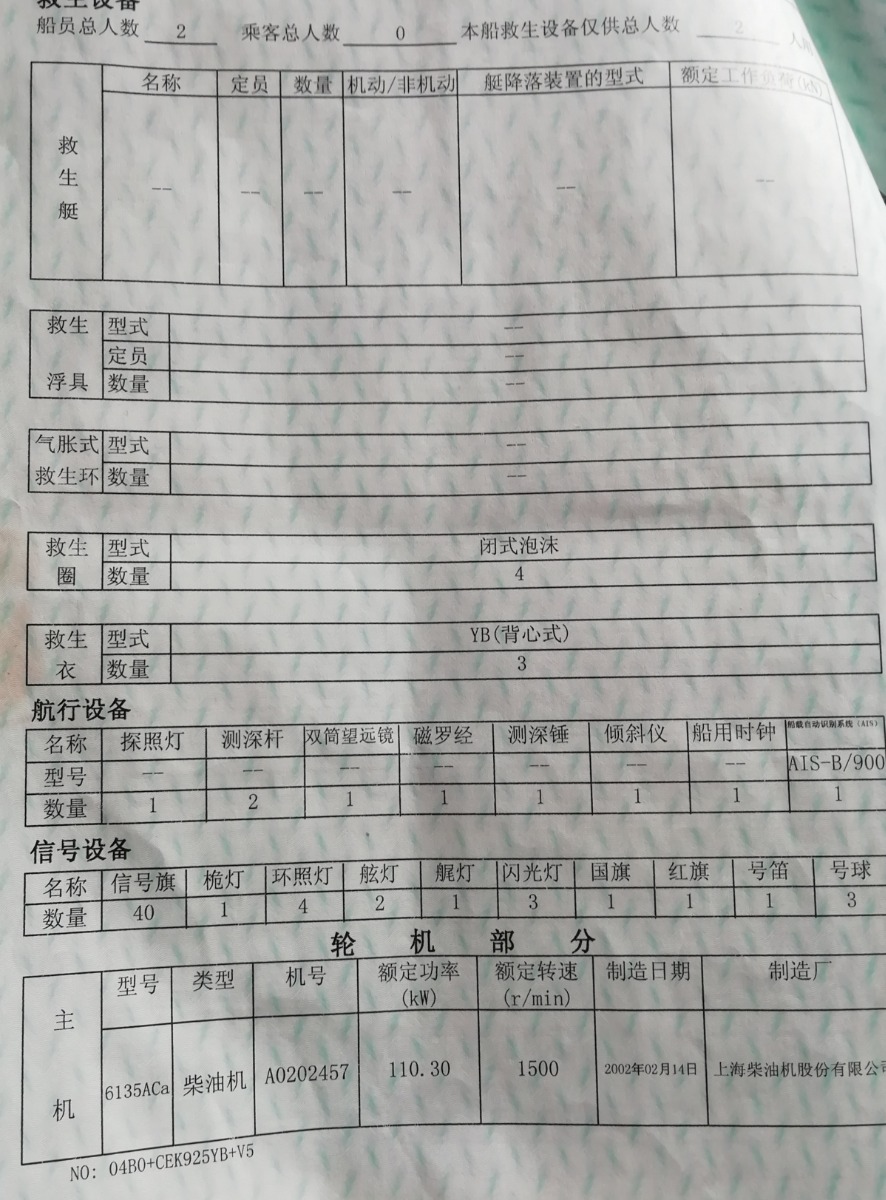 救生设备
船员总人数 2 乘客总人数 0 本船救生设备仅供总人数 2 人
名称 定员 数量 机动/非机动 艇降落装置的型式 额定工作负荷(kN)
救生艇 -- -- -- -- -- --
救生浮具 型式 --
定员 --
数量 --
气胀式救生环 型式 --
数量 --
救生圈 型式 闭式泡沫
数量 4
救生衣 型式 YB(背心式)
数量 3
航行设备
名称 探照灯 测深杆 双筒望远镜 磁罗经 测深锤 倾斜仪 船用时钟 船载自动识别系统(AIS)
型号 -- -- -- -- -- -- -- AIS-B/900
数量 1 2 1 1 1 1 1 1
信号设备
名称 信号旗 桅灯 环照灯 舷灯 艉灯 闪光灯 国旗 红旗 号笛 号球
数量 40 1 4 2 1 3 1 1 1 3
轮机部分
主机 型号 类型 机号 额定功率(kW) 额定转速(r/min) 制造日期 制造厂
6135ACa 柴油机 A0202457 110.30 1500 2002年02月14日 上海柴油机股份有限公司
NO: 04B0+CEK925YB+V5